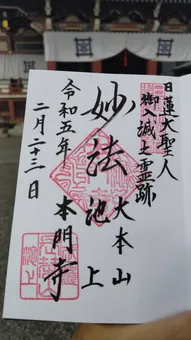 日蓮大聖人
御入滅之霊跡
大本山
妙法
池上
本門寺
令和五年
二月二十三日